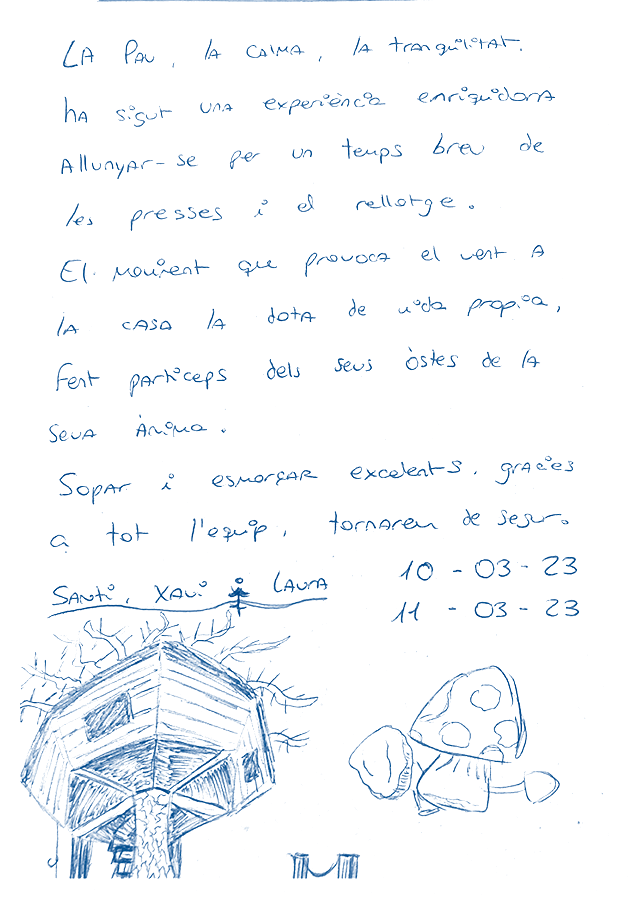 LA PAU, la calma, la tranquilitat.
ha sigut una experiència enriquidora
Allunyar-se per un temps breu de
les presses i el rellotge.
El moviment que provoca el vent a
la casa la dota de vida propia,
Fent particeps dels seus òstes de la
seva Ànima.
Sopar i esmorçar excelents, gracies
a tot l'equip, tornarem de segur.
Santi, Xavi i Laura
10 - 03 - 23
11 - 03 - 23